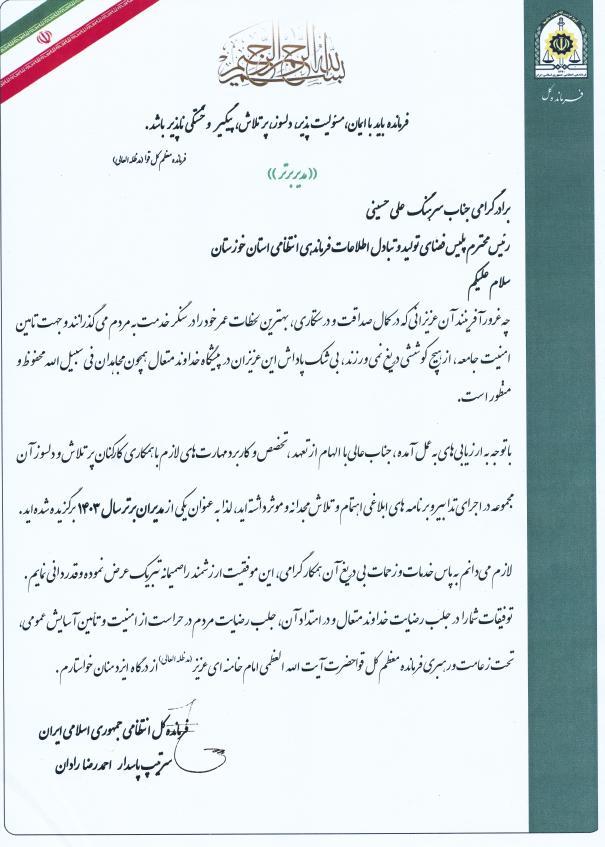 بسم الله الرحمن الرحیم
فرمانده کل
فرمانده باید با ایمان، مسئولیت پذیر، دلسوز، پر تلاش، پیگیر و خستگی ناپذیر باشد.
فرمانده معظم کل قوا (مدظله العالی)
((مدیر برتر))
برادر گرامی جناب سرهنگ علی حسینی
رئیس محترم پلیس فضای تولید و تبادل اطلاعات فرماندهی انتظامی استان خوزستان
سلام علیکم
چه غرور آفرینند آن عزیزانی که در کمال صداقت و درستکاری، بهترین لحظات عمر خود را در سنگر خدمت به مردم می گذرانند و جهت تامین
امنیت جامعه، از هیچ کوششی دریغ نمی ورزند، بی شک پاداش این عزیزان در پیشگاه خداوند متعال همچون مجاهدان فی سبیل الله محفوظ و
منظور است.
با توجه به ارزیابی های به عمل آمده، جناب عالی با الهام از تعهد، تخصص و کاربرد مهارت های لازم با همکاری کارکنان پر تلاش و دلسوز آن
مجموعه در اجرای تدابیر و برنامه های ابلاغی اهتمام و تلاش مجدانه و موثر داشته اید، لذا به عنوان یکی از مدیران برتر سال ۱۴۰۳ برگزیده شده اید.
لازم می دانم به پاس خدمات و زحمات بی دریغ آن همکار گرامی، این موفقیت ارزشمند را صمیمانه تبریک عرض نموده و قدردانی نمایم.
توفیقات شما را در جلب رضایت خداوند متعال و در امتداد آن، جلب رضایت مردم در حراست از امنیت و تأمین آسایش عمومی،
تحت زعامت و رهبری فرمانده معظم کل قوا حضرت آیت الله العظمی امام خامنه ای عزیز (مدظله العالی) از درگاه ایزد منان خواستارم.
فرمانده کل انتظامی جمهوری اسلامی ایران
سرتیپ پاسدار احمدرضا رادان